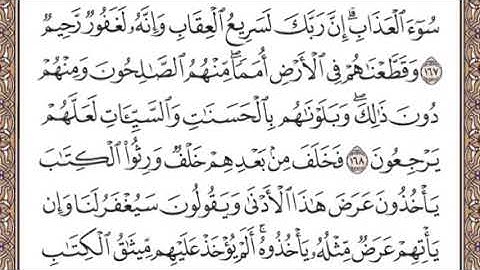 سُوٓءَ ٱلْعَذَابِ ۗ إِنَّ رَبَّكَ لَسَرِيعُ ٱلْعِقَابِ وَإِنَّهُۥ لَغَفُورٌ رَّحِيمٌ
١٦٧ وَقَطَّعْنَٰهُمْ فِى ٱلْأَرْضِ أُمَمًا ۖ مِّنْهُمُ ٱلصَّٰلِحُونَ وَمِنْهُمْ
دُونَ ذَٰلِكَ ۖ وَبَلَوْنَٰهُم بِٱلْحَسَنَٰتِ وَٱلسَّيِّـَٔاتِ لَعَلَّهُمْ
يَرْجِعُونَ ١٦٨ فَخَلَفَ مِنۢ بَعْدِهِمْ خَلْفٌ وَرِثُوا۟ ٱلْكِتَٰبَ
يَأْخُذُونَ عَرَضَ هَٰذَا ٱلْأَدْنَىٰ وَيَقُولُونَ سَيُغْفَرُ لَنَا وَإِن
يَأْتِهِمْ عَرَضٌ مِّثْلُهُۥ يَأْخُذُوهُ ۚ أَلَمْ يُؤْخَذْ عَلَيْهِم مِّيثَٰقُ ٱلْكِتَٰبِ